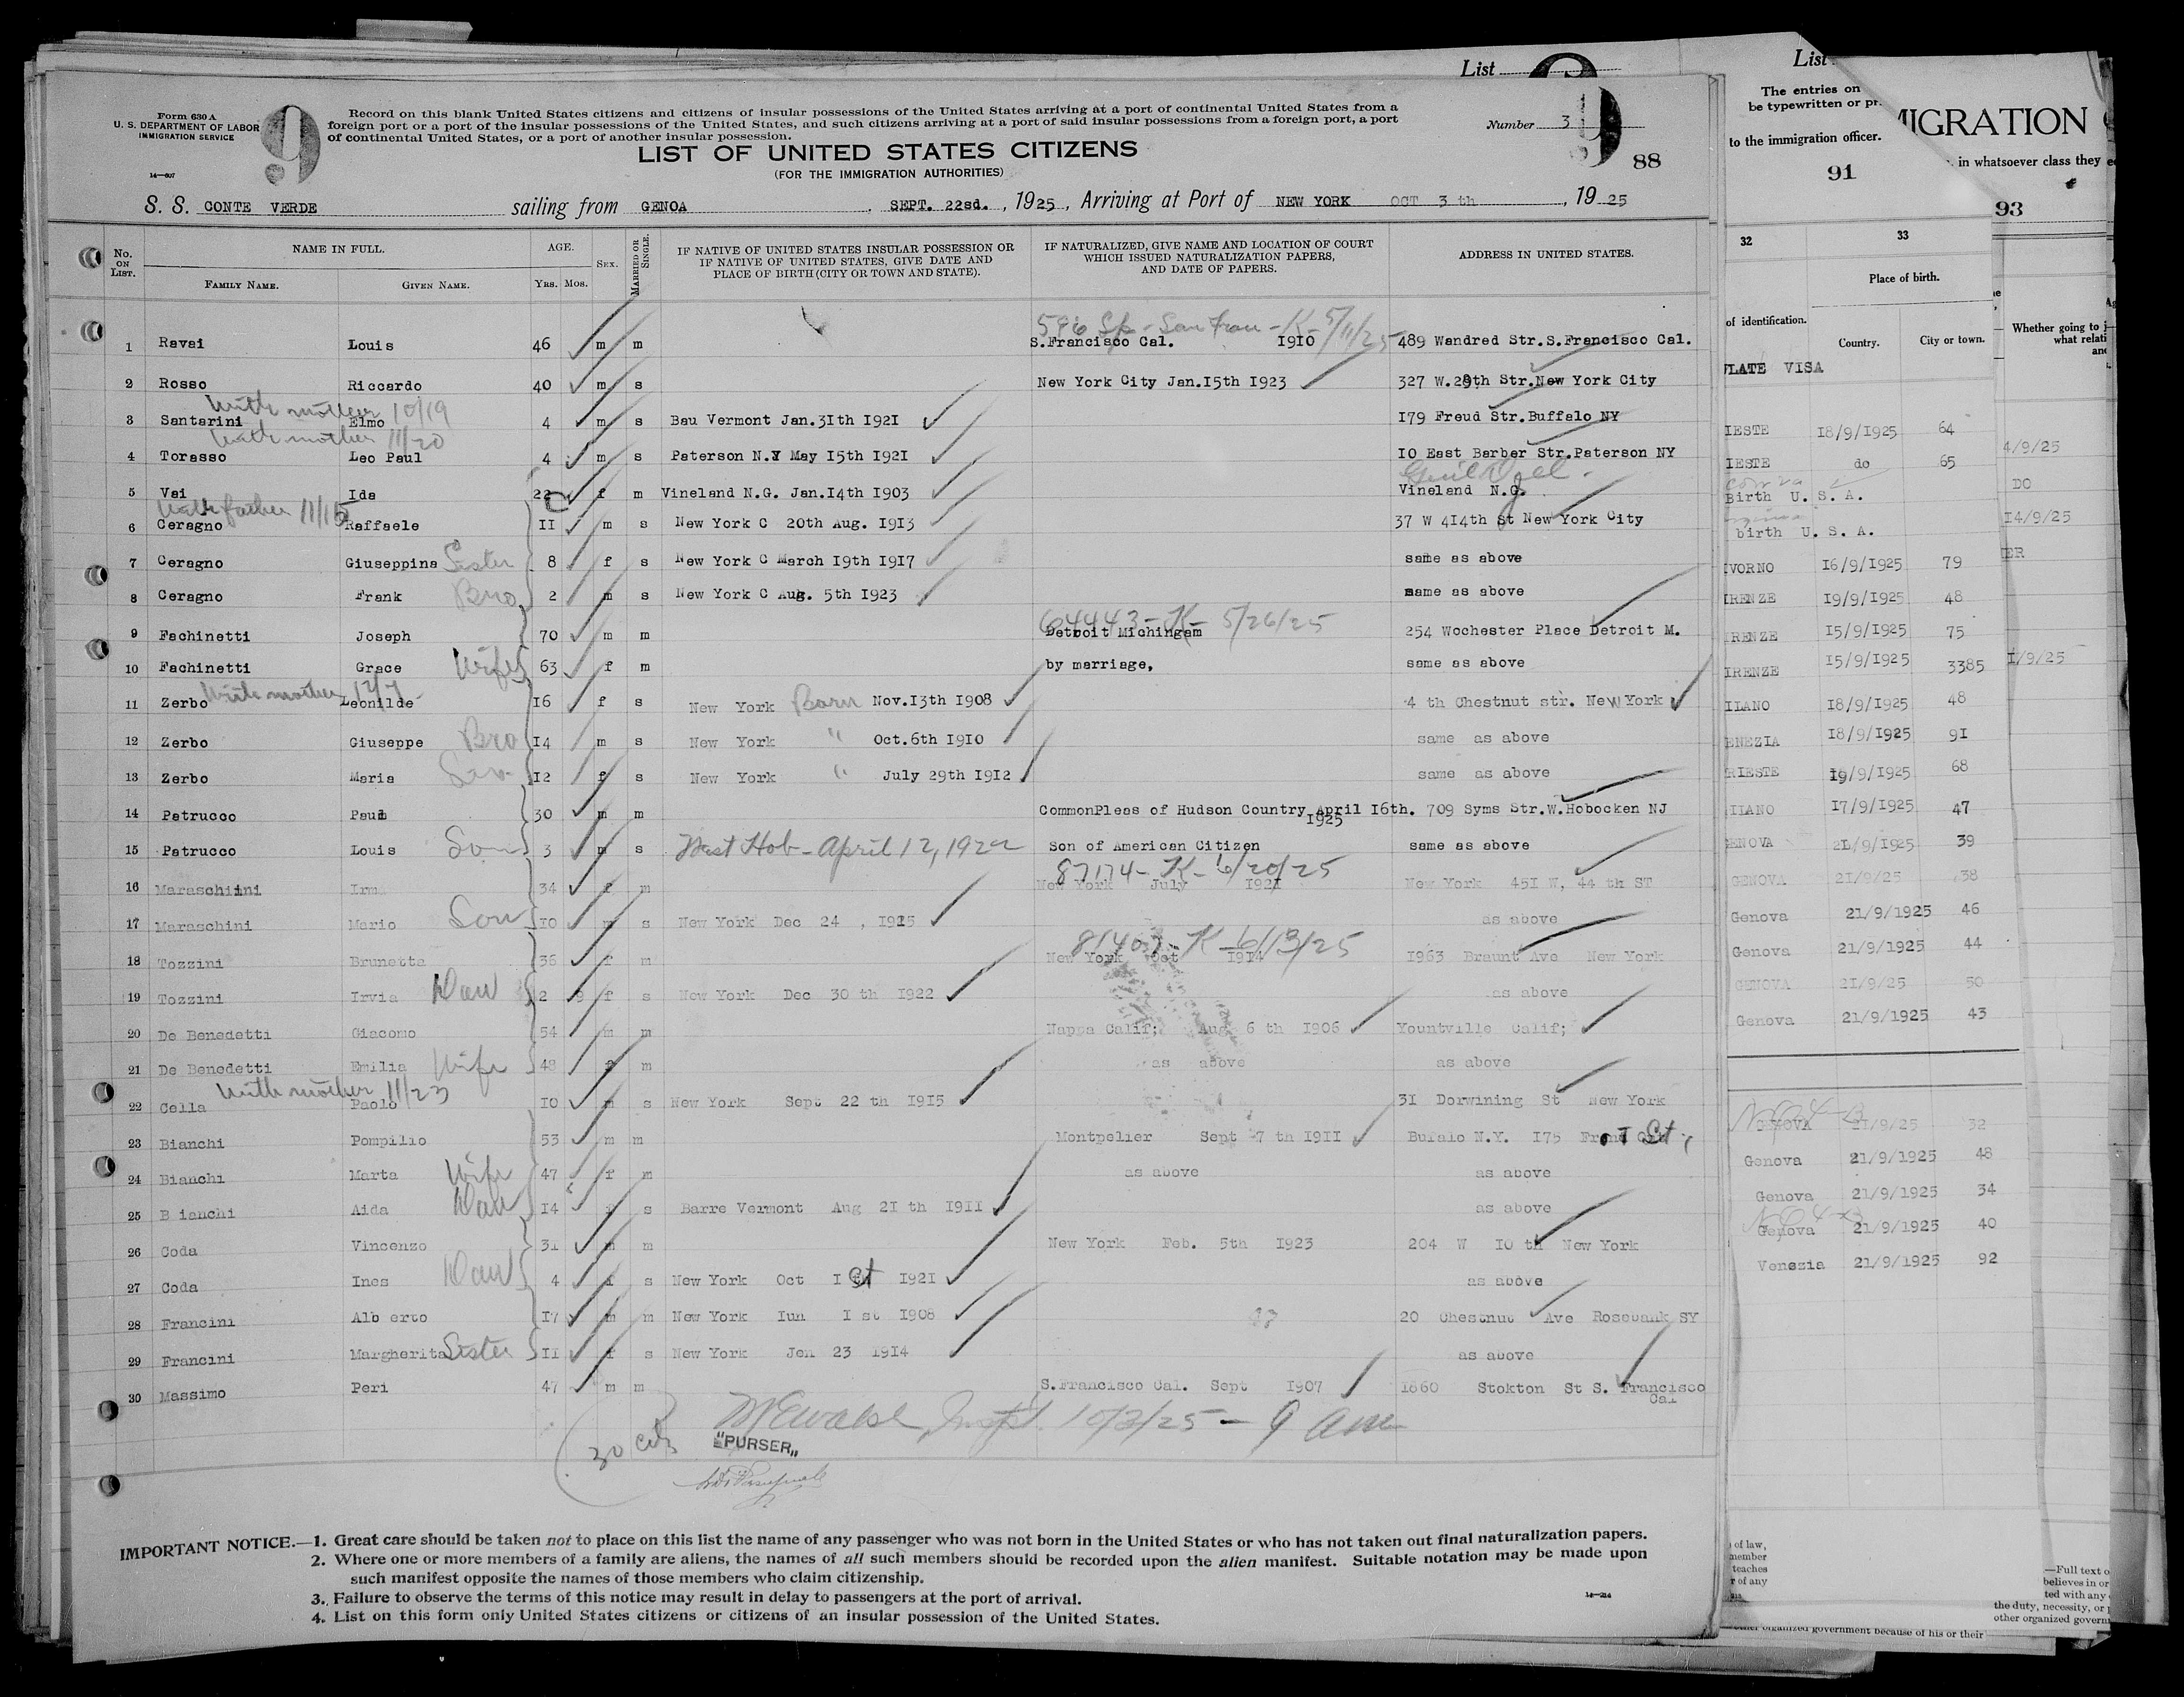 List
9
Form 630 A
U. S. DEPARTMENT OF LABOR
IMMIGRATION SERVICE
14—607
9
Record on this blank United States citizens and citizens of insular possessions of the United States arriving at a port of continental United States from a
foreign port or a port of the insular possessions of the United States, and such citizens arriving at a port of said insular possessions from a foreign port, a port
of continental United States, or a port of another insular possession.
LIST OF UNITED STATES CITIZENS
(FOR THE IMMIGRATION AUTHORITIES)
Number 3
9
88
S. S. CONTE VERDE sailing from GENOA, SEPT. 22sd., 1925, Arriving at Port of NEW YORK OCT 3 th, 19 25
No. ON LIST.
NAME IN FULL.
FAMILY NAME. GIVEN NAME.
AGE.
YRS. MOS.
SEX.
MARRIED OR SINGLE.
IF NATIVE OF UNITED STATES INSULAR POSSESSION OR
IF NATIVE OF UNITED STATES, GIVE DATE AND
PLACE OF BIRTH (CITY OR TOWN AND STATE).
IF NATURALIZED, GIVE NAME AND LOCATION OF COURT
WHICH ISSUED NATURALIZATION PAPERS,
AND DATE OF PAPERS.
ADDRESS IN UNITED STATES.
San Fran - K - 5/11/25
1 Ravai Louis 46 m m S.Francisco Cal. 1910 489 Wandred Str.S.Francisco Cal.
2 Rosso Riccardo 40 m s New York City Jan.15th 1923 327 W.29th Str.New York City
With mother 10/19
3 Santarini Elmo 4 m s Bau Vermont Jan.31th 1921 179 Freud Str.Buffalo NY
With mother 11/20
4 Torasso Leo Paul 4 m s Paterson N.Y May 15th 1921 10 East Barber Str.Paterson NY
5 Vai Ida 22 f m Vineland N.G. Jan.14th 1903 Vineland N.G.
With father 11/15
6 Ceragno Raffaele 11 m s New York C 20th Aug. 1913 37 W 414th St New York City
7 Ceragno Giuseppina Sister 8 f s New York C March 19th 1917 same as above
8 Ceragno Frank Bro 2 m s New York C Aug. 5th 1923 same as above
64443 - K - 5/26/25
9 Fachinetti Joseph 70 m m Detroit Michingam 254 Wochester Place Detroit M.
10 Fachinetti Grace Wife 63 f m by marriage, same as above
With mother 12/7
11 Zerbo Leonilde 16 f s New York Born Nov.13th 1908 4 th Chestnut str. New York
12 Zerbo Giuseppe Bro 14 m s New York " Oct.6th 1910 same as above
13 Zerbo Maria 12 f s New York " July 29th 1912 same as above
14 Patrucco Paul 30 m m CommonPleas of Hudson Country April 16th. 1925 709 Syms Str.W.Hobocken NJ
15 Patrucco Louis Son 3 m s West Hob - April 12, 1922 Son of American Citizen same as above
87174 - K - 6/20/25
16 Maraschiini Irma 34 f m New York July 1921 New York 451 W, 44 th ST
17 Maraschini Mario Son 10 m s New York Dec 24 , 1915 as above
K - 6/13/25
18 Tozzini Brunetta 36 f m New York Oct 1914 1963 Braunt Ave New York
19 Tozzini Irvia Dau 2 9 f s New York Dec 30 th 1922 as above
20 De Benedetti Giacomo 54 m m Nappa Calif; Aug 6 th 1906 Yountville Calif;
21 De Benedetti Emilia Wife 48 f m as above as above
With mother 11/23
22 Cella Paolo 10 m s New York Sept 22 th 1915 31 Dorwining St New York
23 Bianchi Pompilio 53 m m Montpelier Sept 7 th 1911 Bufalo N.Y. 175 St
24 Bianchi Marta Wife 47 f m as above as above
25 B ianchi Aida Dau 14 f s Barre Vermont Aug 21 th 1911 as above
26 Coda Vincenzo 31 m m New York Feb. 5th 1923 204 W 10 th New York
27 Coda Ines Dau 4 f s New York Oct 1 st 1921 as above
28 Francini Alb erto 17 m m New York Iun 1 st 1908 20 Chestnut Ave Rosebank SY
29 Francini Margherita Sister 11 f s New York Jen 23 1914 as above
30 Massimo Peri 47 m m S.Francisco Cal. Sept 1907 1860 Stokton St S. Francisco
Cal
10/2/25 — 9 am
30 cits
"PURSER"
IMPORTANT NOTICE.—1. Great care should be taken not to place on this list the name of any passenger who was not born in the United States or who has not taken out final naturalization papers.
2. Where one or more members of a family are aliens, the names of all such members should be recorded upon the alien manifest. Suitable notation may be made upon
such manifest opposite the names of those members who claim citizenship.
3. Failure to observe the terms of this notice may result in delay to passengers at the port of arrival.
4. List on this form only United States citizens or citizens of an insular possession of the United States.
14—214
List
The entries on
be typewritten or pr.
to the immigration officer.
91
MIGRATION
in whatsoever class they
93
32
33
Place of birth.
of identification.
Country.
City or town.
Whether going to j
what relati
an
LATE VISA
IESTE 18/9/1925 64
4/9/25
IESTE do 65
Birth U. S. A.
DO
birth U. S. A.
14/9/25
VORNO 16/9/1925 79
ER
IRENZE 19/9/1925 48
IRENZE 15/9/1925 75
IRENZE 15/9/1925 3385
1/9/25
ILANO 18/9/1925 48
ENEZIA 18/9/1925 91
RIESTE 19/9/1925 68
ILANO 17/9/1925 47
GENOVA 21/9/1925 39
GENOVA 21/9/25 38
Genova 21/9/1925 46
Genova 21/9/1925 44
GENOVA 21/9/25 50
Genova 21/9/1925 43
GENOVA 21/9/25 32
Genova 21/9/1925 48
Genova 21/9/1925 34
Genova 21/9/1925 40
Venezia 21/9/1925 92
of law,
member
teaches
r of any
—Full text o
believes in or
ted with any
the duty, necessity, or
other organized govern
other organized government because of his or their